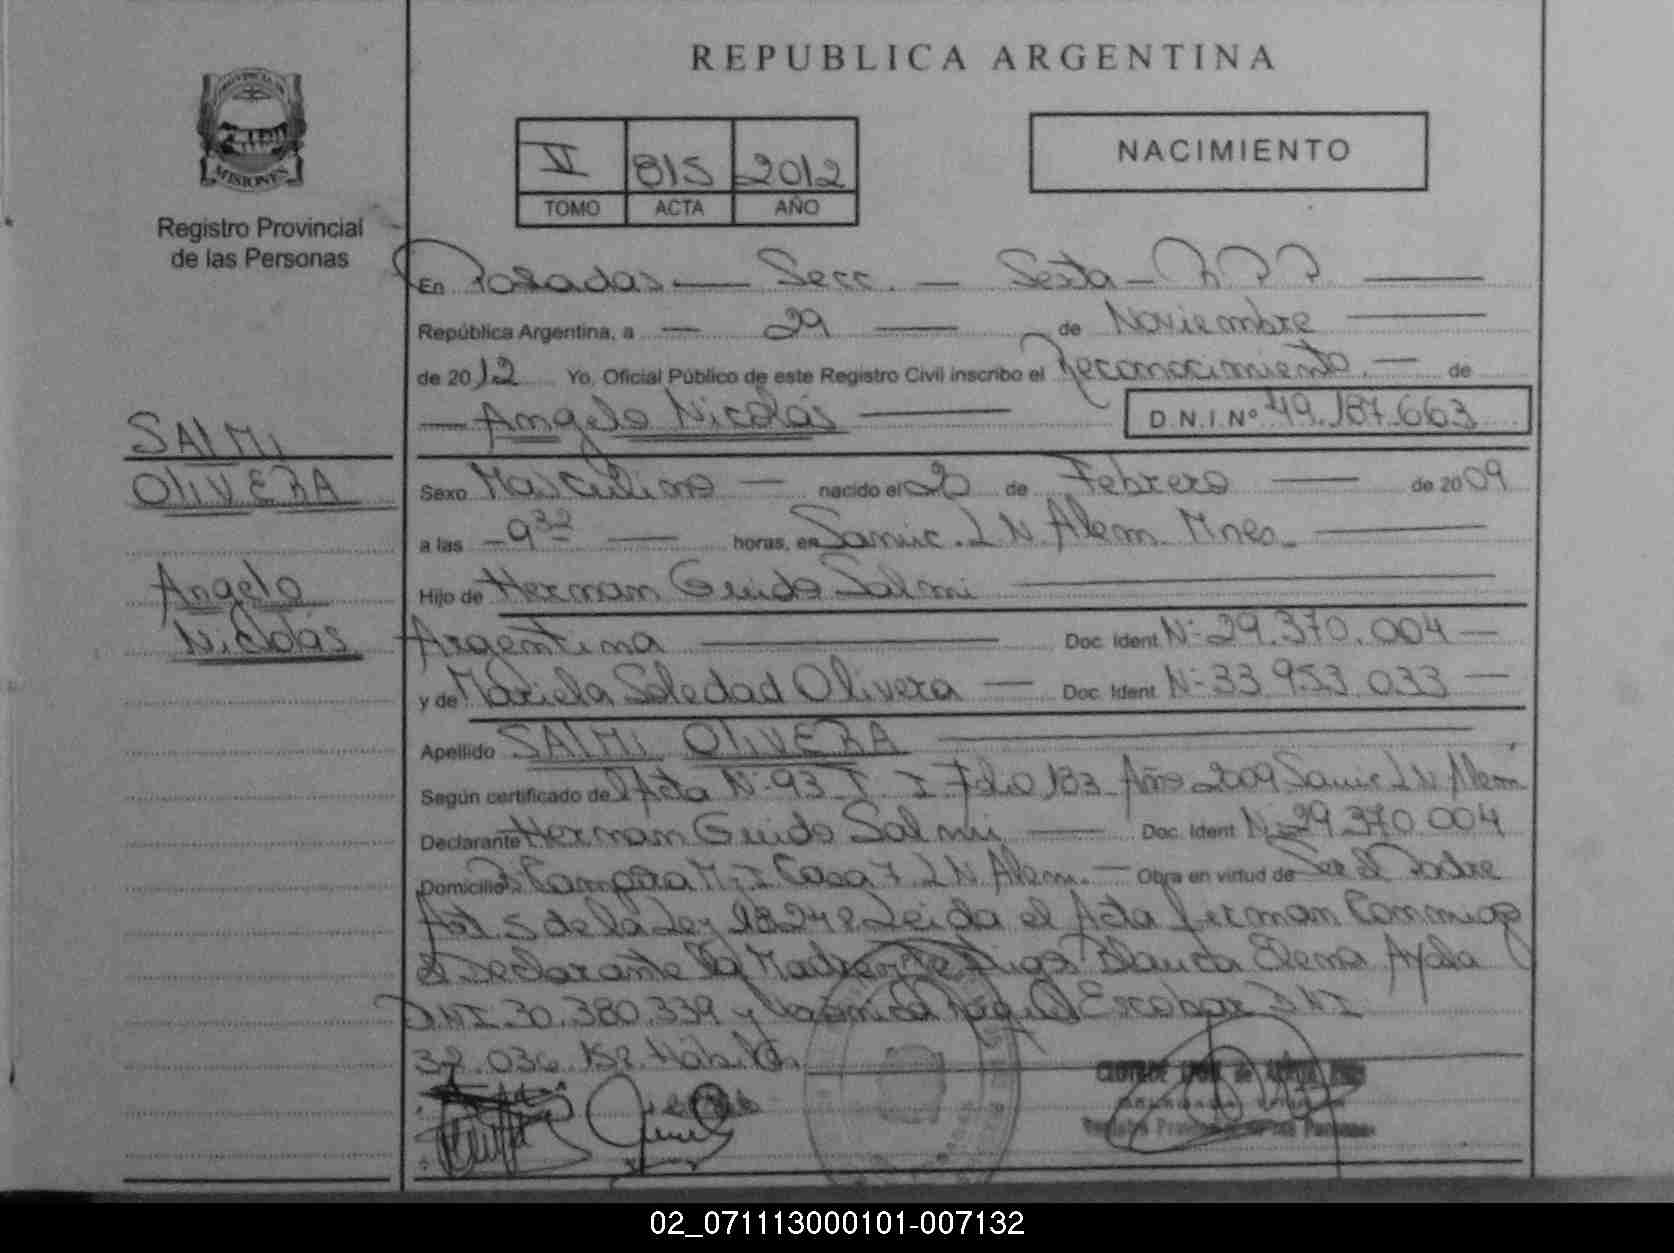 REPUBLICA ARGENTINA
PROVINCIA DE
MISIONES
Registro Provincial
de las Personas
VI 815 2012
TOMO ACTA AÑO
NACIMIENTO
En Posadas — Secc. — Sexta —
República Argentina, a — 29 — de Noviembre —
de 2012 Yo, Oficial Público de este Registro Civil inscribo el Reconocimiento — de
— Angelo Nicolás — D.N.I. Nº 49.187.663
SALMI
OLIVERA
Angelo
Nicolás
Sexo Masculino — nacido el 20 de Febrero — de 2009
a las — 9 32 — horas, en Samic. L N Alem Mnes. —
Hijo de Hernan Guido Salmi —
Argentina — Doc. Ident. Nº 29.370.004 —
y de Mariela Soledad Olivera — Doc. Ident. Nº 33.953.033 —
Apellido SALMI OLIVERA —
Según certificado del Acta Nº 93 T. I Folio 183 Año 2009 Samic L N Alem
Declarante Hernan Guido Salmi — Doc. Ident. Nº 29.370.004
Domicilio Casa 7 L N Alem. — Obra en virtud de Ser el Padre
Art. 5 de la Ley 18248. Leida el Acta firman Conmigo
el Declarante la Madre Blanca Elena Ayala
DNI 30.380.339 y Escobar DNI
32.036.152.
02_071113000101-007132